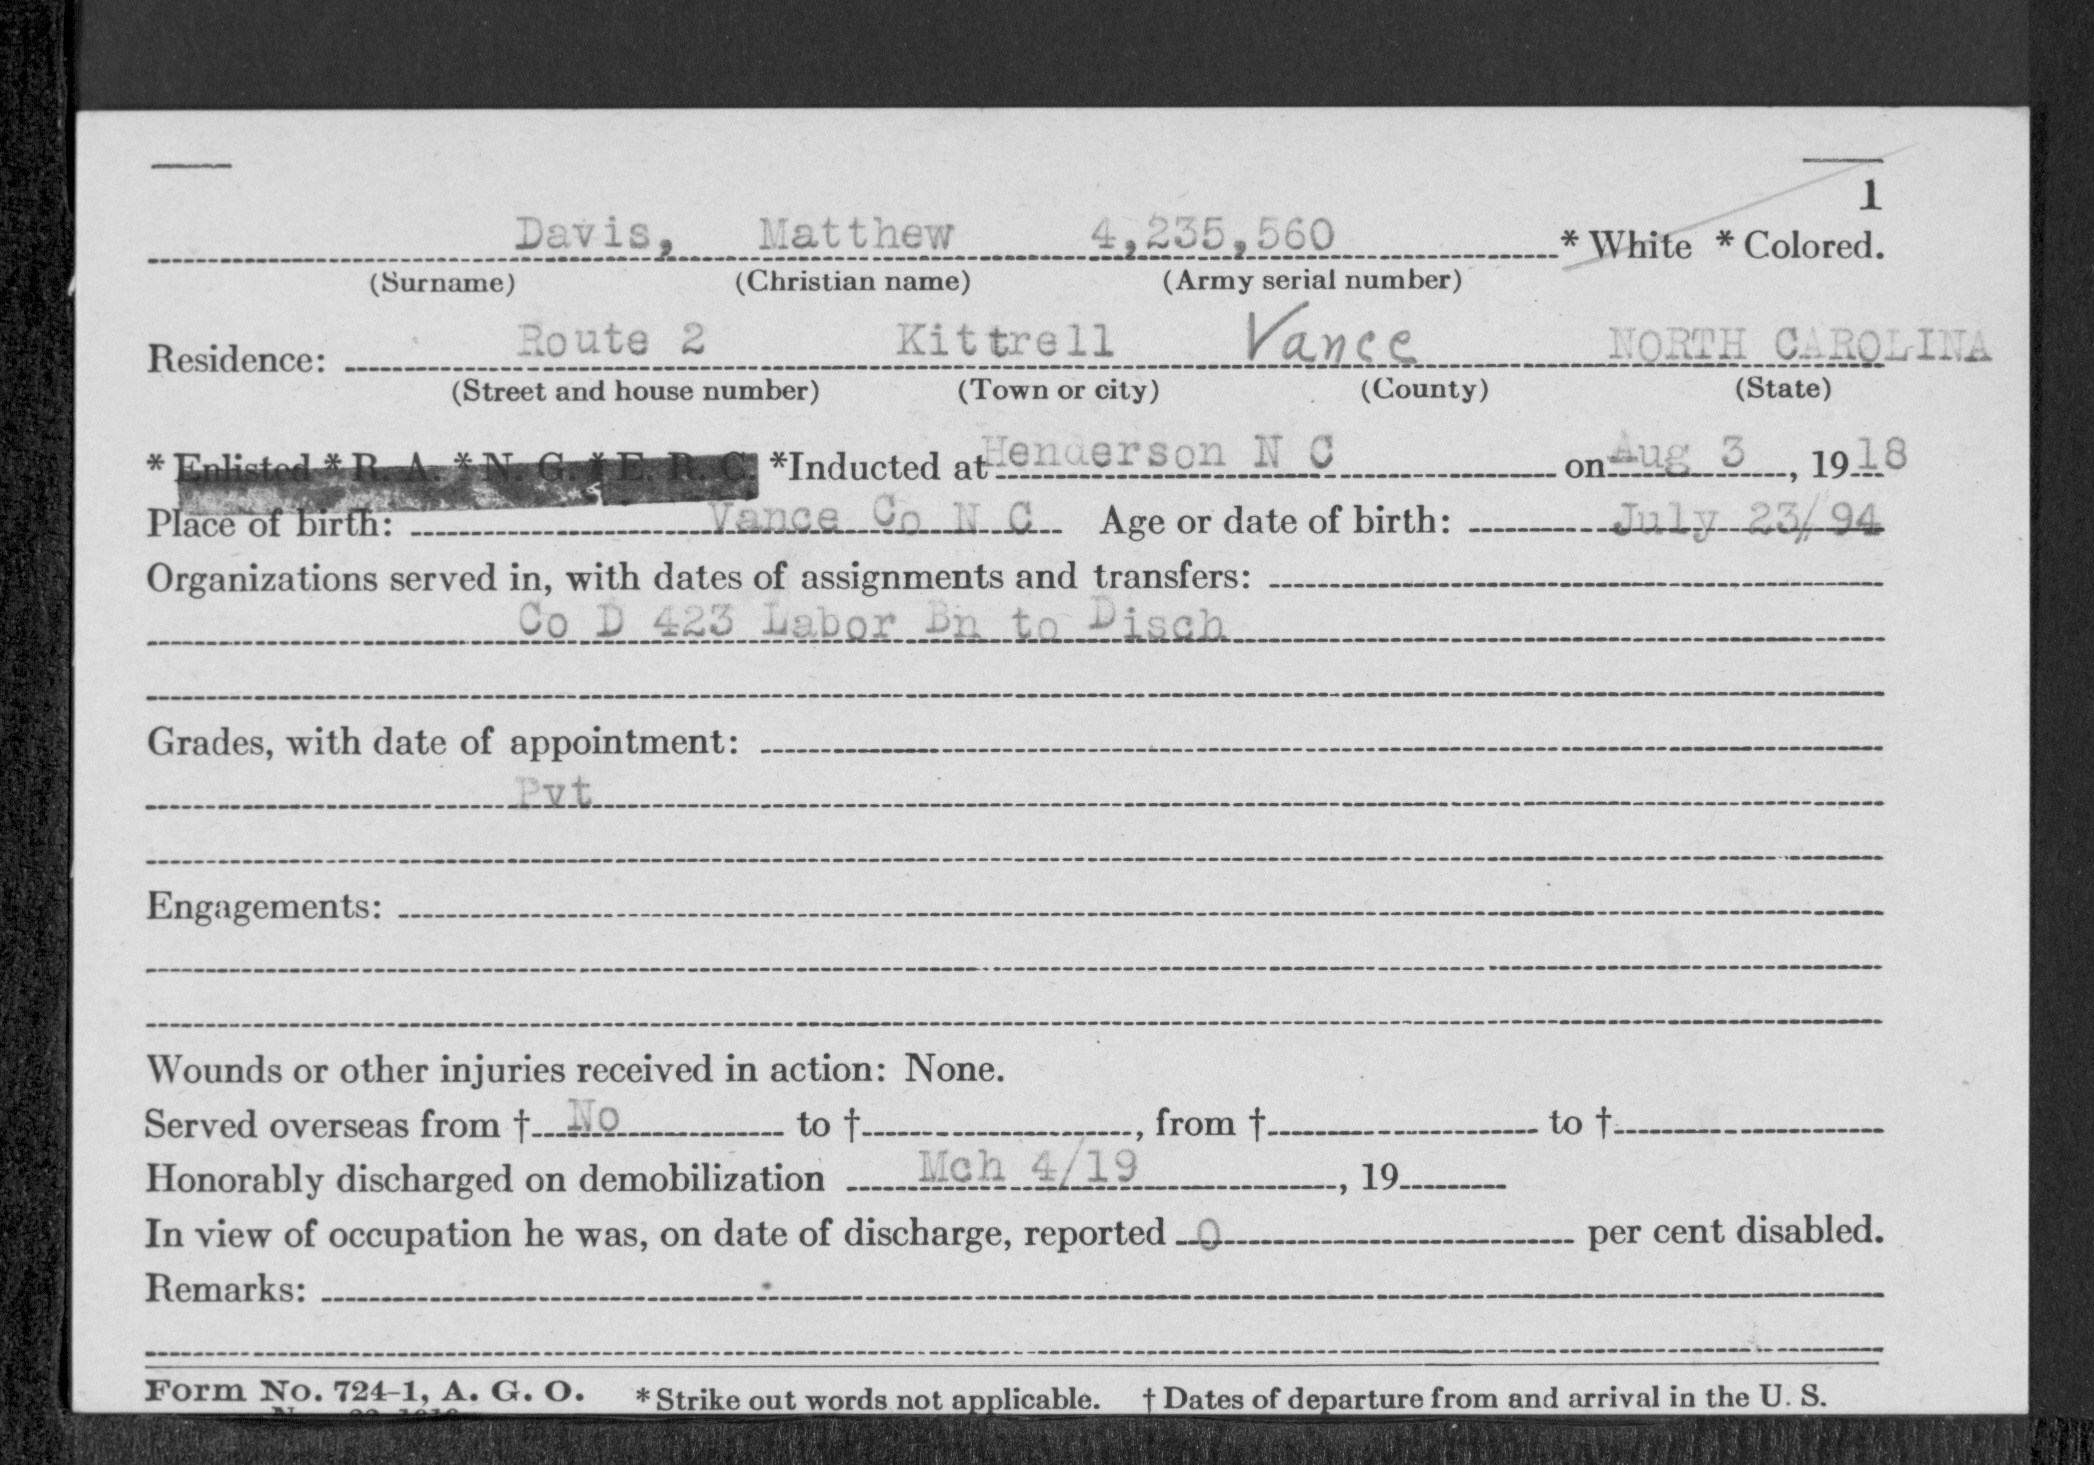 1
Davis, Matthew 4,235,560 * White * Colored.
(Surname) (Christian name) (Army serial number)
Residence: Route 2 Kittrell Vance NORTH CAROLINA
(Street and house number) (Town or city) (County) (State)
* Enlisted * R. A. * N. G. * E. R. C. *Inducted at Henderson N C on Aug 3, 1918
Place of birth: Vance Co N C Age or date of birth: July 23/94
Organizations served in, with dates of assignments and transfers:
Co D 423 Labor Bn to Disch
Grades, with date of appointment:
Pvt
Engagements:
Wounds or other injuries received in action: None.
Served overseas from † No to †, from † to †
Honorably discharged on demobilization Mch 4/19, 19
In view of occupation he was, on date of discharge, reported 0 per cent disabled.
Remarks:
Form No. 724-1, A. G. O. * Strike out words not applicable. † Dates of departure from and arrival in the U. S.